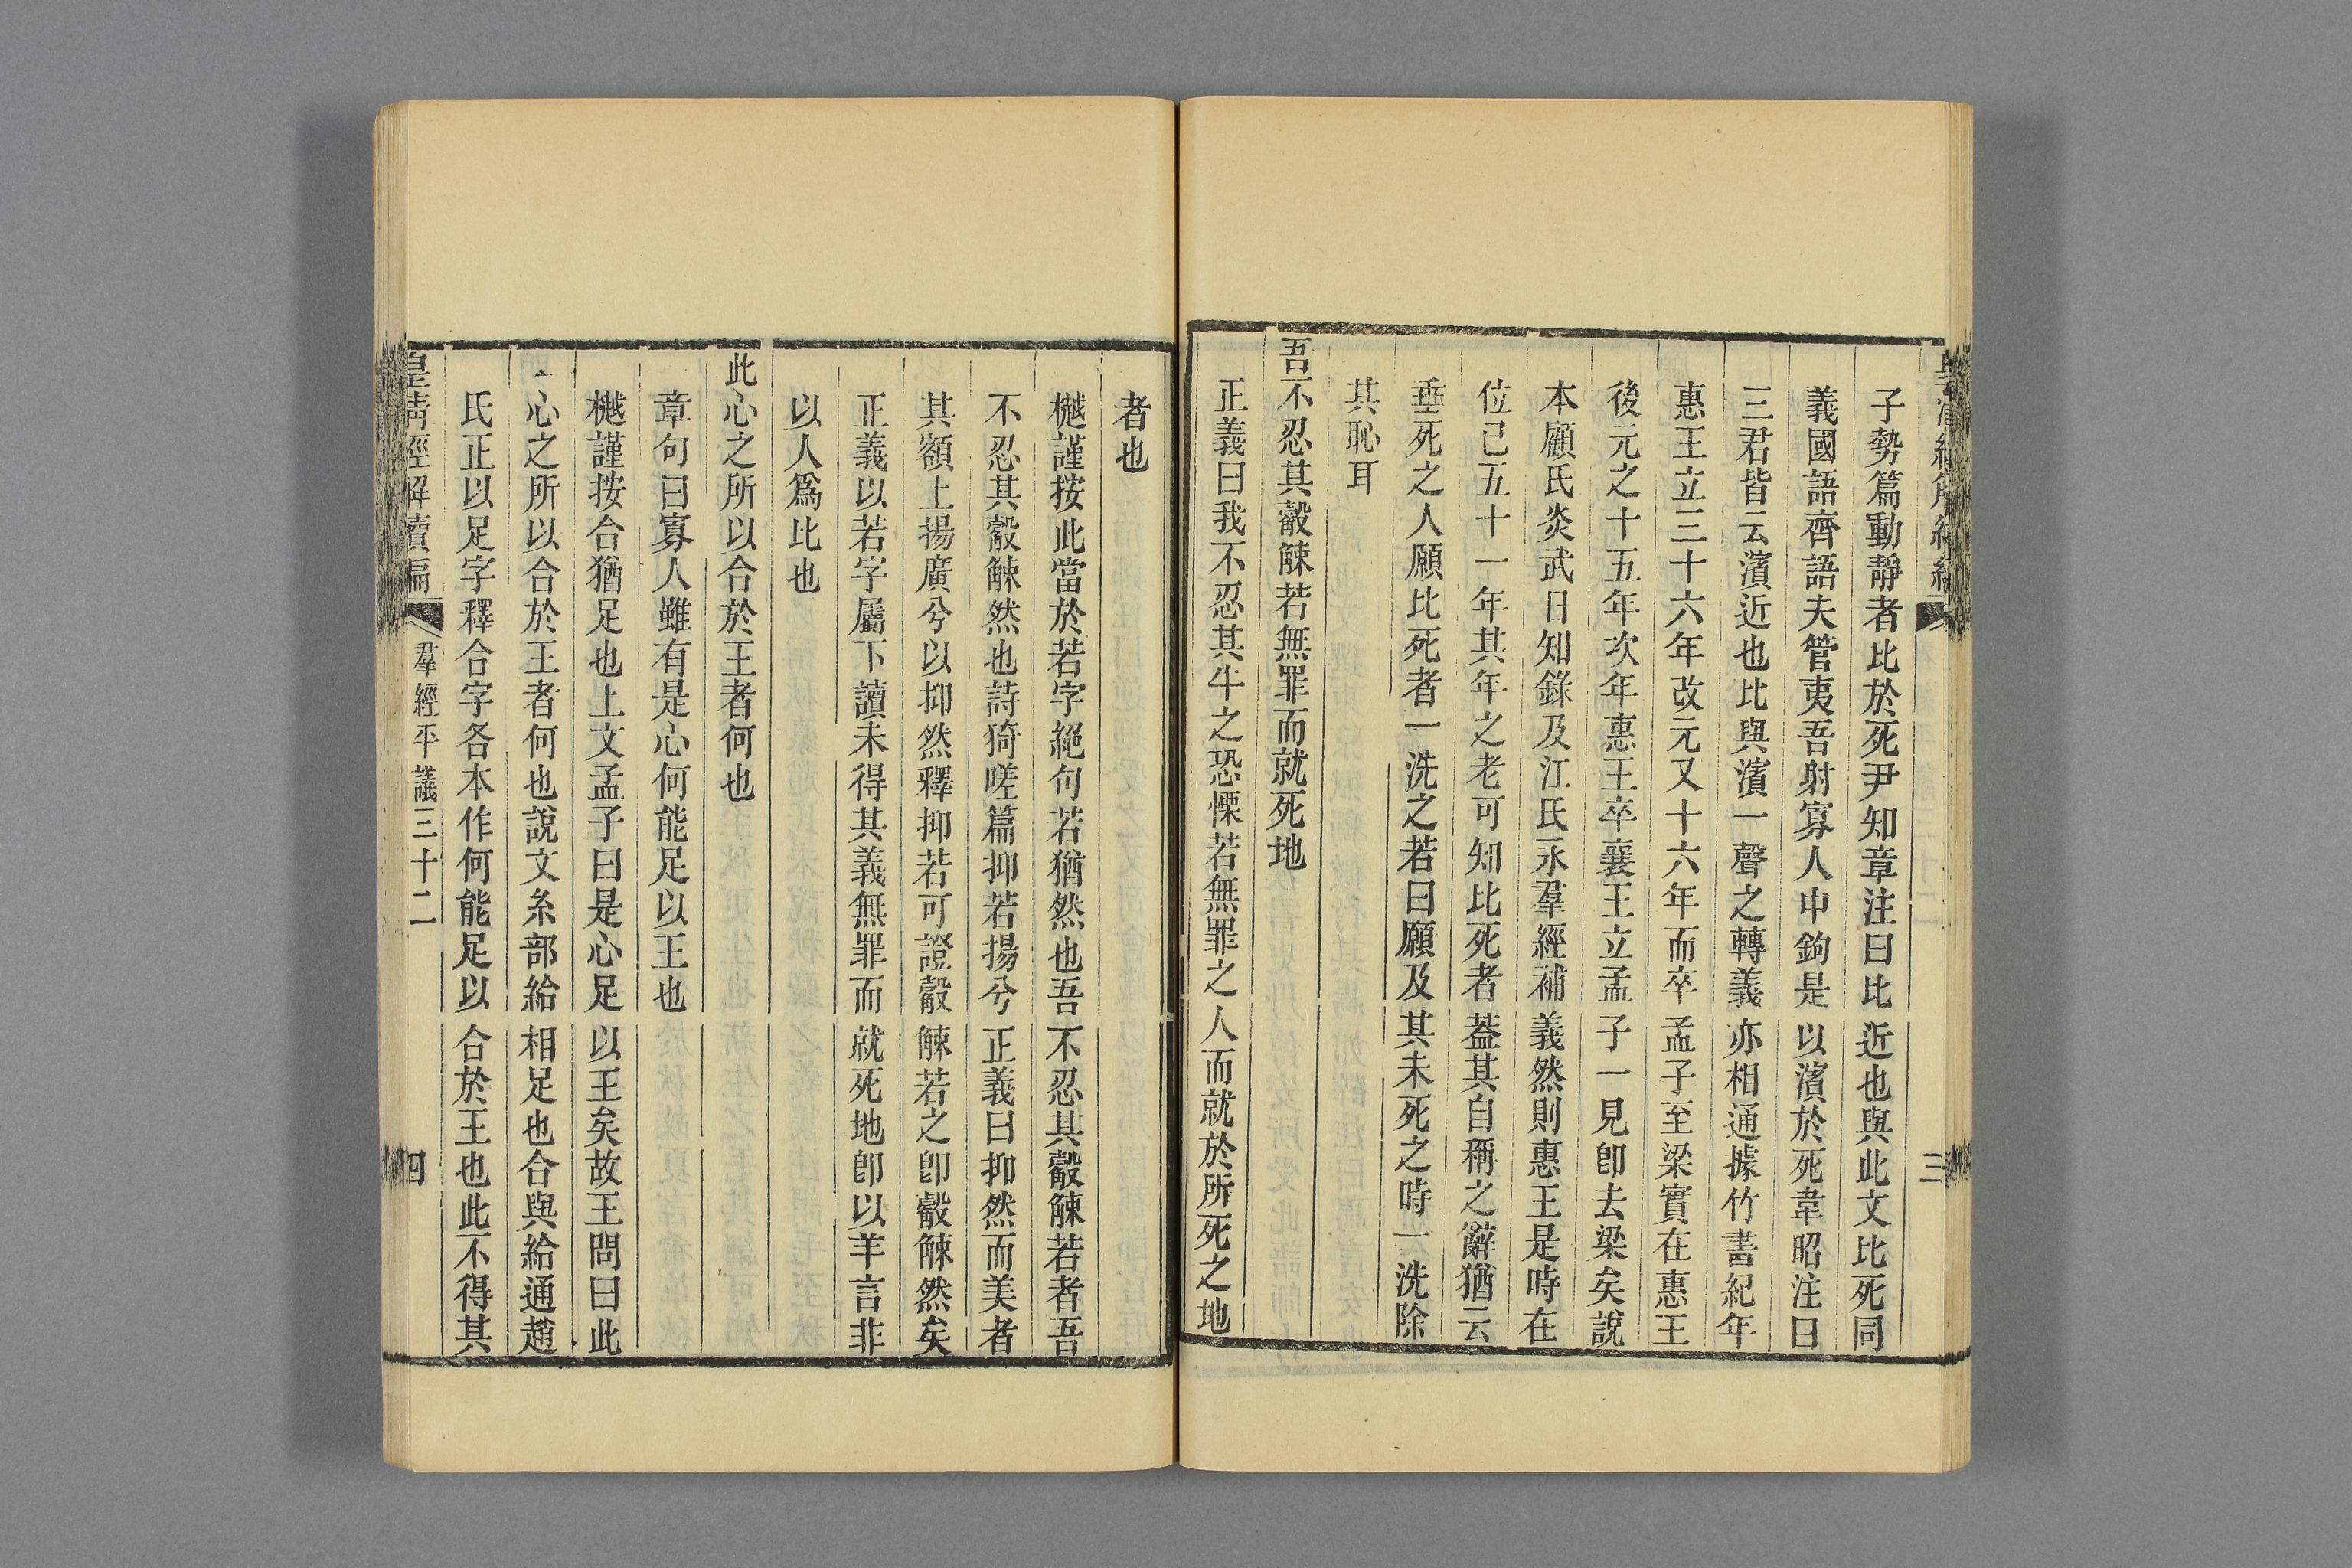 三
子勢篇動靜者比於死尹知章注曰比近也與此文比死同
義國語齊語夫管夷吾射寡人中鉤是以濱於死韋昭注曰
三君皆云濱近也比與濱一聲之轉義亦相通據竹書紀年
惠王立三十六年改元又十六年而卒孟子至梁實在惠王
後元之十五年次年惠王卒襄王立孟子一見卽去梁矣說
本顧氏炎武日知錄及江氏永羣經補義然則惠王是時在
位已五十一年其年之老可知比死者蓋其自稱之辭猶云
垂死之人願比死者一洗之若曰願及其未死之時一洗除
其恥耳
吾不忍其觳觫若無罪而就死地
正義曰我不忍其牛之恐慄若無罪之人而就於所死之地
者也
樾謹按此當於若字絕句若猶然也吾不忍其觳觫若者吾
不忍其觳觫然也詩猗嗟篇抑若揚兮正義曰抑然而美者
其額上揚廣兮以抑然釋抑若可證觳觫若之卽觳觫然矣
正義以若字屬下讀未得其義無罪而就死地卽以羊言非
以人爲比也
此心之所以合於王者何也
章句曰寡人雖有是心何能足以王也
樾謹按合猶足也上文孟子曰是心足以王矣故王問曰此
心之所以合於王者何也說文糸部給相足也合與給通趙
氏正以足字釋合字各本作何能足以合於王也此不得其
皇清經解續編 羣經平議三十二 四